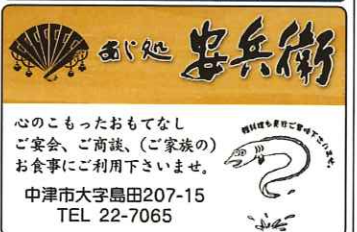 あじ処 安兵衛
心のこもったおもてなし
ご宴会、ご商談、(ご家族の)
お食事にご利用下さいませ。
中津市大字島田207-15
TEL 22-7065
鱧料理も是非ご賞味下さいませ。